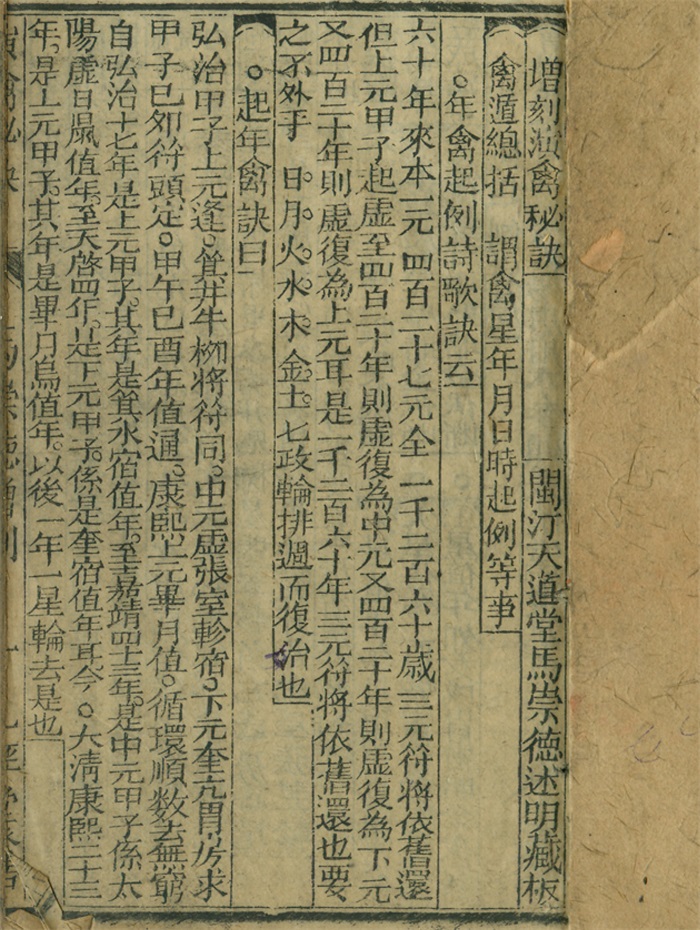 增刻演禽秘訣 閩汀天道堂馬崇德述明藏板
禽遁總括 謂禽星年月日時起例等事
○年禽起例詩歌訣云
六十年來本一元 四百二十七元全 一千二百六十歲 三元符將依舊還
但上元甲子起虛至四百二十年則虛復為中元又四百二十年則虛復為下元
又四百二十年則虛復為上元耳是一千二百六十年三元符將依舊還也要
之不外乎 日月火水木金土七政輪排週而復治也
○起年禽訣曰
弘治甲子上元逢。箕井牛柳將符同。中元虛張室軫宿。下元奎亢胃房求
甲子巳夘符頭定。甲午巳酉年值通。康熙上元畢月值。循環順数去無窮
自弘治十七年是上元甲子。其年是箕水宿值年。至嘉靖四十三年。是中元甲子係太
陽虛日鼠值年。至天啓四年。是下元甲子。係是奎宿值年耳今。○大清康熙二十三
年。是上元甲子。其年是畢月烏值年。以後一年一星輪去是也